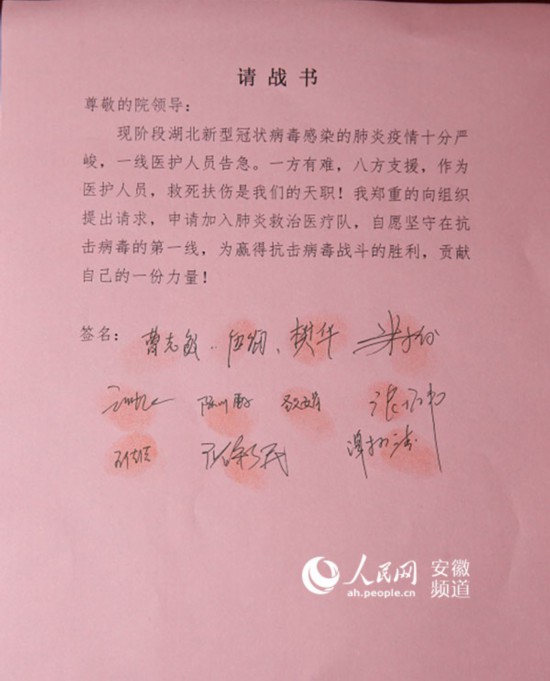 请战书
尊敬的院领导：
现阶段湖北新型冠状病毒感染的肺炎疫情十分严
峻，一线医护人员告急。一方有难，八方支援，作为
医护人员，救死扶伤是我们的天职！我郑重的向组织
提出请求，申请加入肺炎救治医疗队，自愿坚守在抗
击病毒的第一线，为赢得抗击病毒战斗的胜利，贡献
自己的一份力量！
签名：曹志敏 樊华
人民网 安徽
频道
ah.people.cn